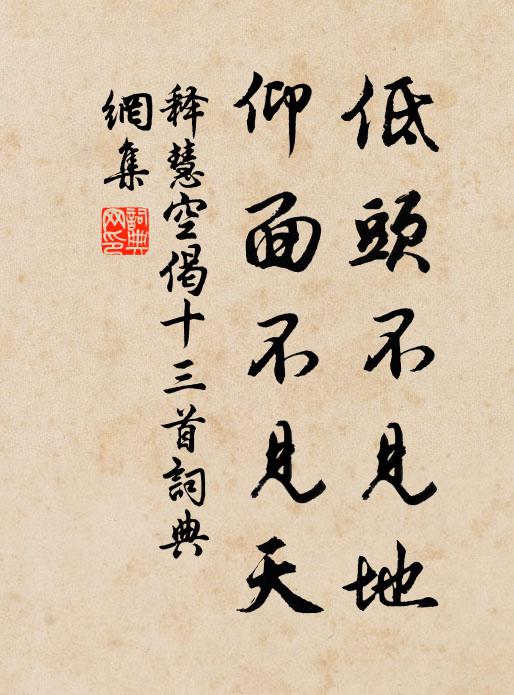 低頭不見地
仰面不見天
释慧空偈十三首詞典
網集
詞典網印